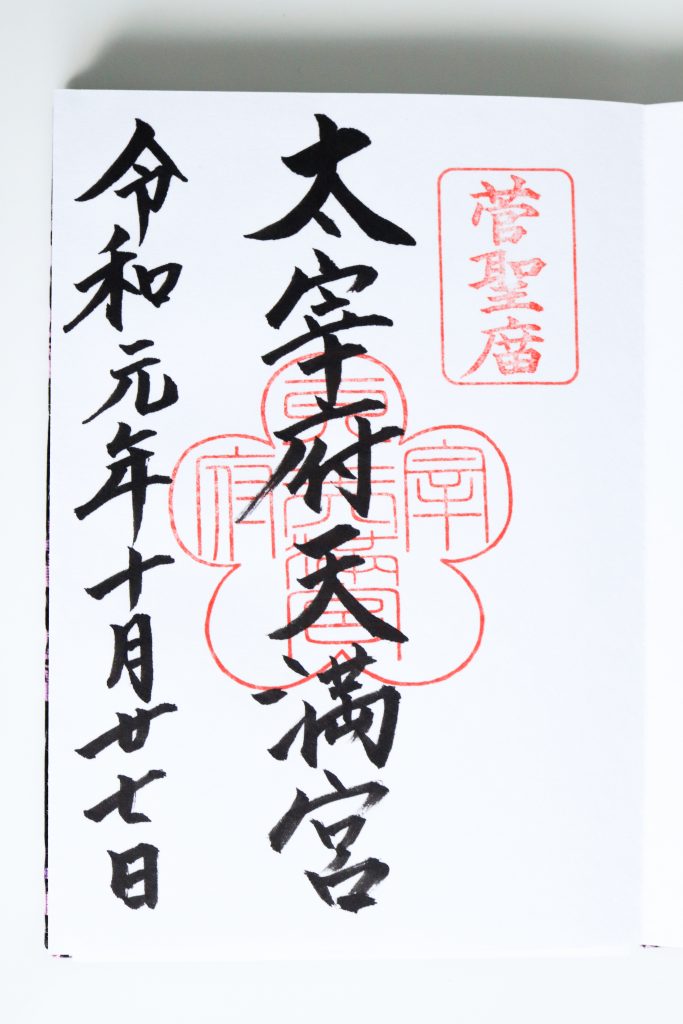 菅聖庿
太宰府天満宮
宰
府
令和元年十月廿七日